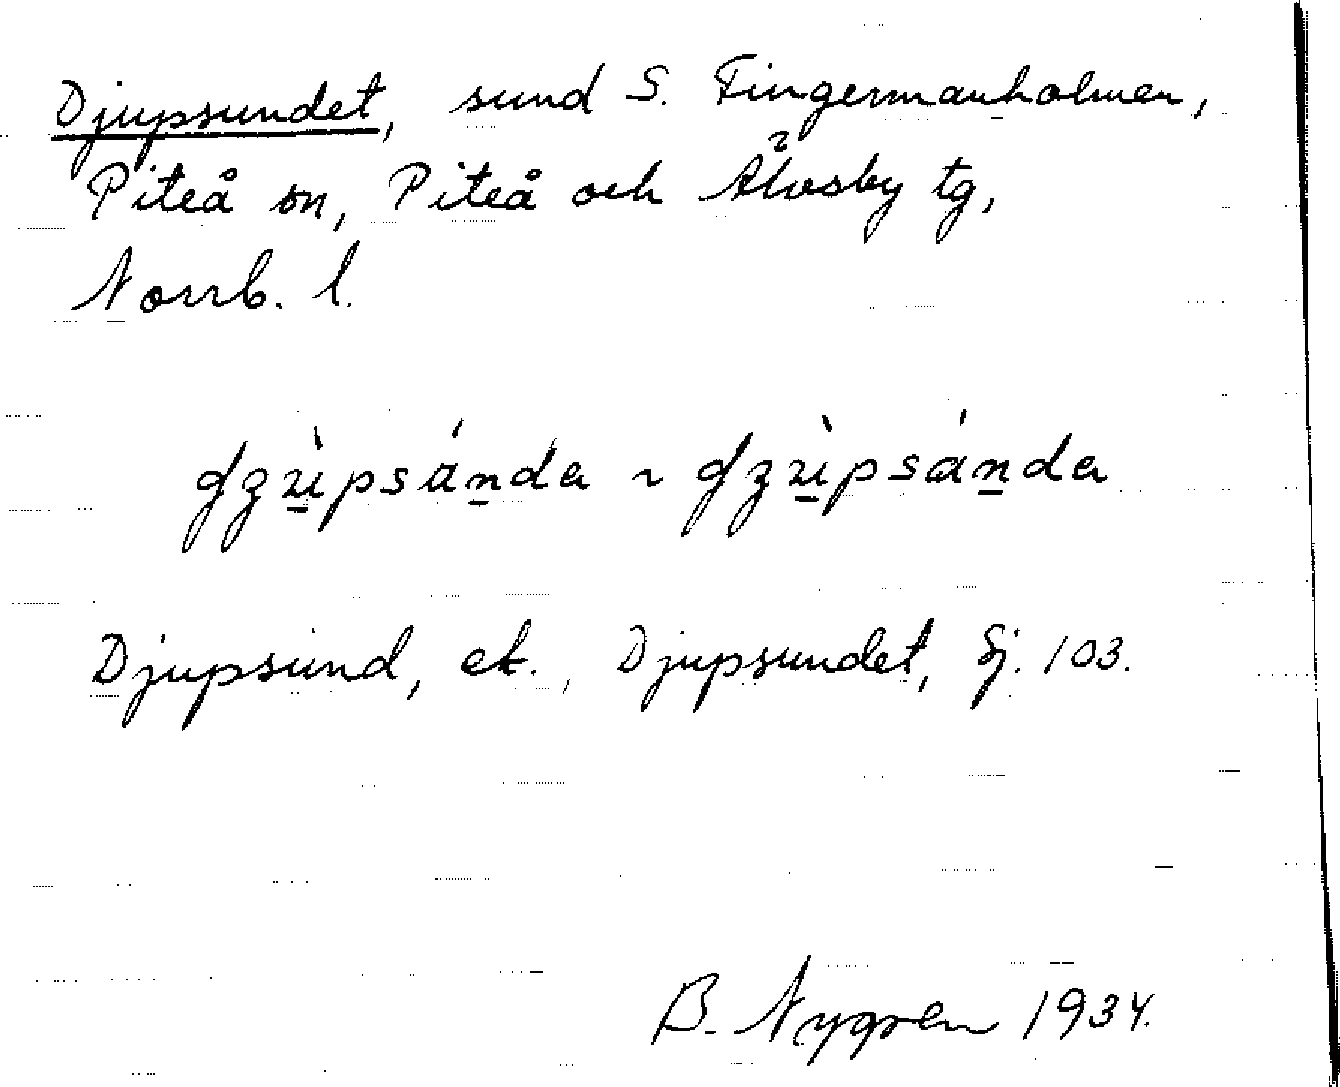 Djupsundet, sund S. Fingermanholmen,
Piteå sn, Piteå och Älvsby tg,
Norrb. l.
Djupsund, ek., Djupsundet, Sj. 103.
B. Nygren 1934.